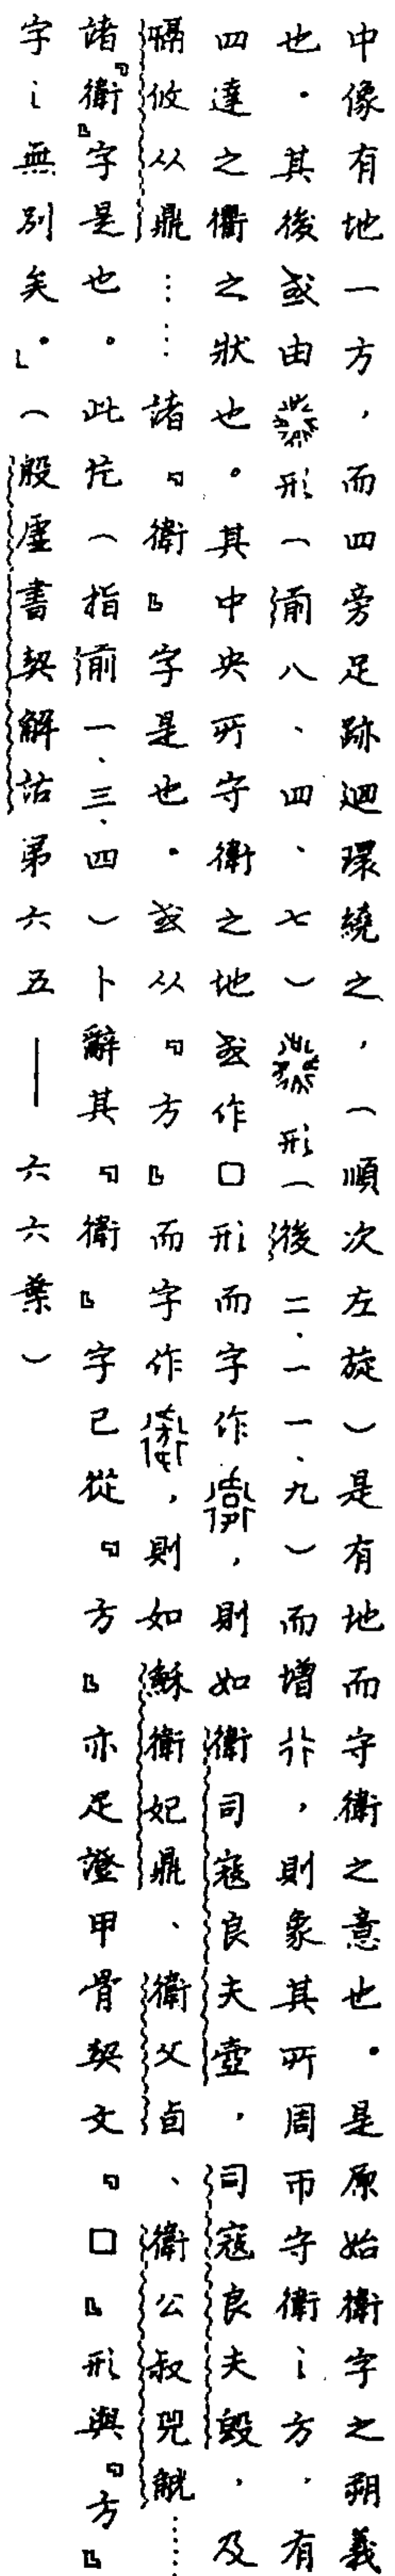 中像有地一方，而四旁足跡迴環繞之，（順次左旋）是有地而守衛之意也。是原始衛字之朔義
也。其後或由形（前八、四、七）形（後二．一一、九）而增行，則象其所周帀守衛之方，有
四達之衢之狀也。其中央所守衛之地或作口形而字作，則如衛司寇良夫壺，司寇良夫毁，及
鬲攸从鼎……諸『衛』字是也。或从『方』而字作，則如穌衛妃鼎、衛父卣、衛公叔兕觥……
諸『衛』字是也。此片（指前一、三、四）卜辭其『衛』字已從『方』亦足證甲骨契文『口』形與『方』
字之無別矣。』（殷虛書契解詁第六五——六六葉）